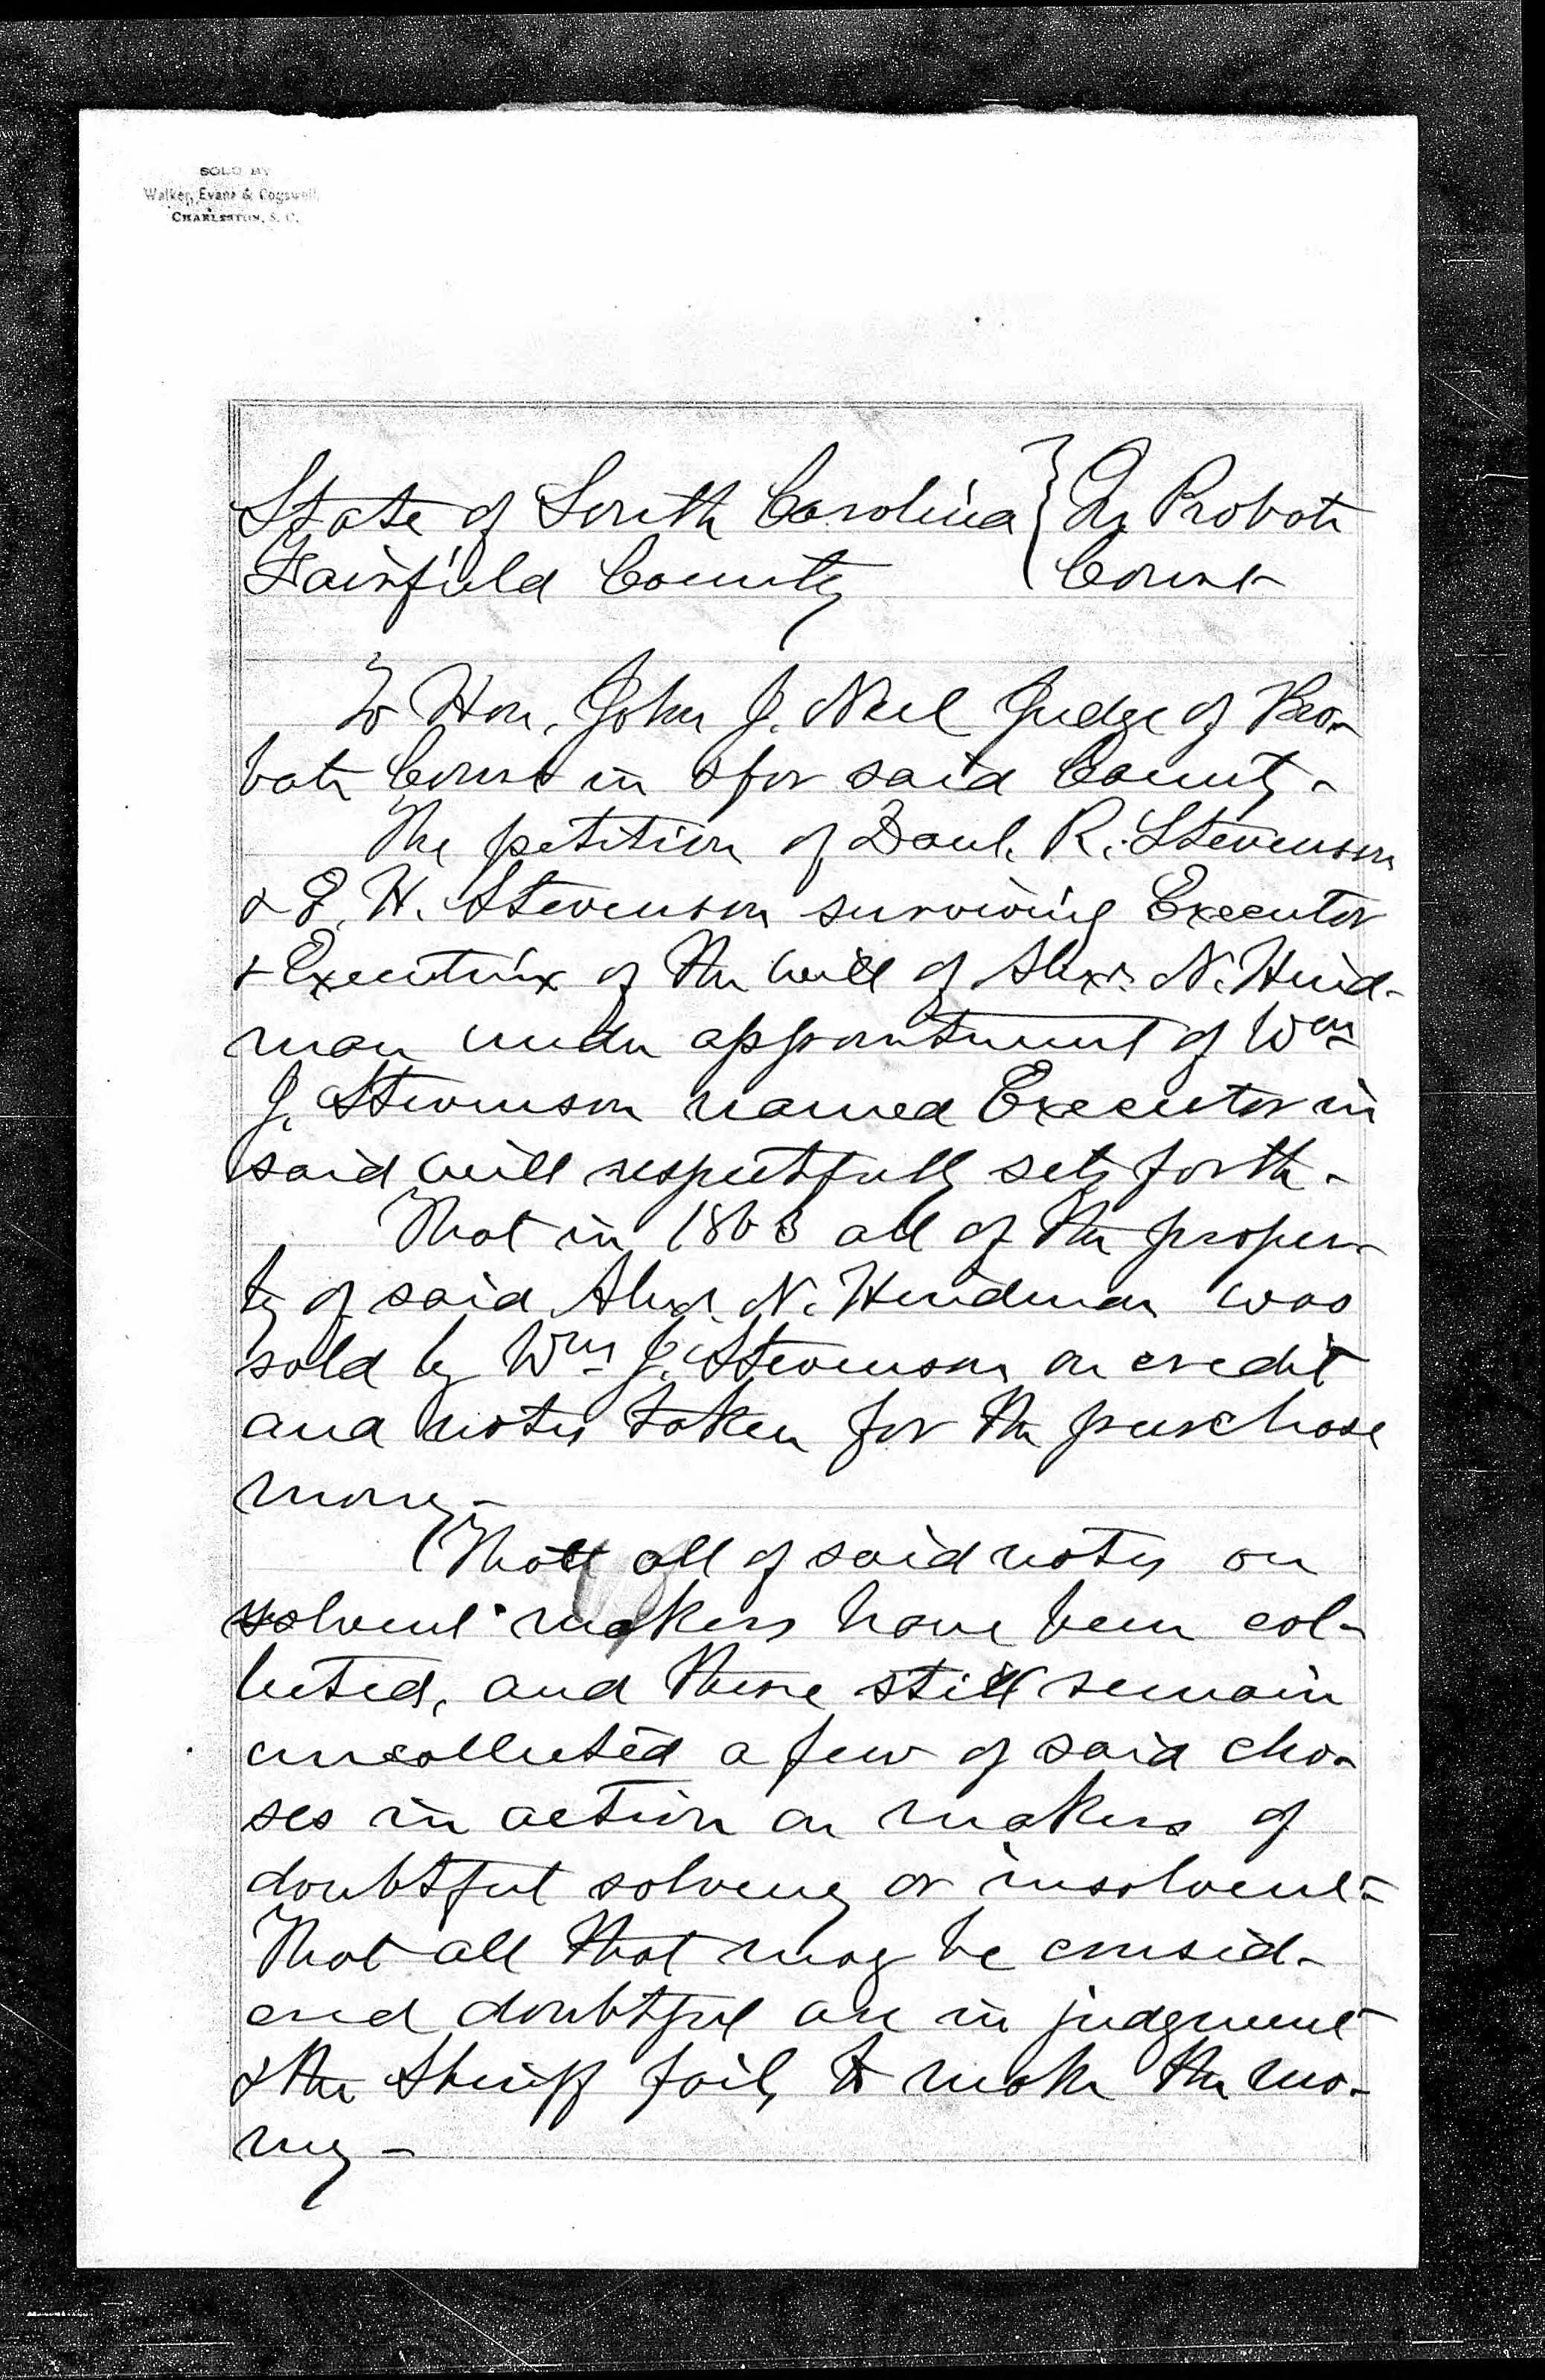 SOLD BY
Walker, Evans & Cogswell,
CHARLESTON, S. C.
State of South Carolina } In Probate
Fairfield County } Court
To Hon. John J. Neil Judge of Pro-
bate Court in & for said County-
The petition of Danl. R. Stevenson
& E. H. Stevenson surviving Executor
& Executrix of the will of Alexr. N. Hind-
man under appointment of Wm
J. Stevenson named Executor in
said will respectfully sets forth-
That in 1863 all of the proper-
ty of said Alexr. N. Hindman was
sold by Wm J. Stevenson on credit
and notes taken for the purchase
money-
That all of said notes on
solvent makers have been col-
lected, and there still remain
uncollected a few of said cho-
ses in action on makers of
doubtful solvency or insolvent-
That all that may be consid-
ered doubtful are in judgment
& the Sheriff fails to make the mo-
ney-